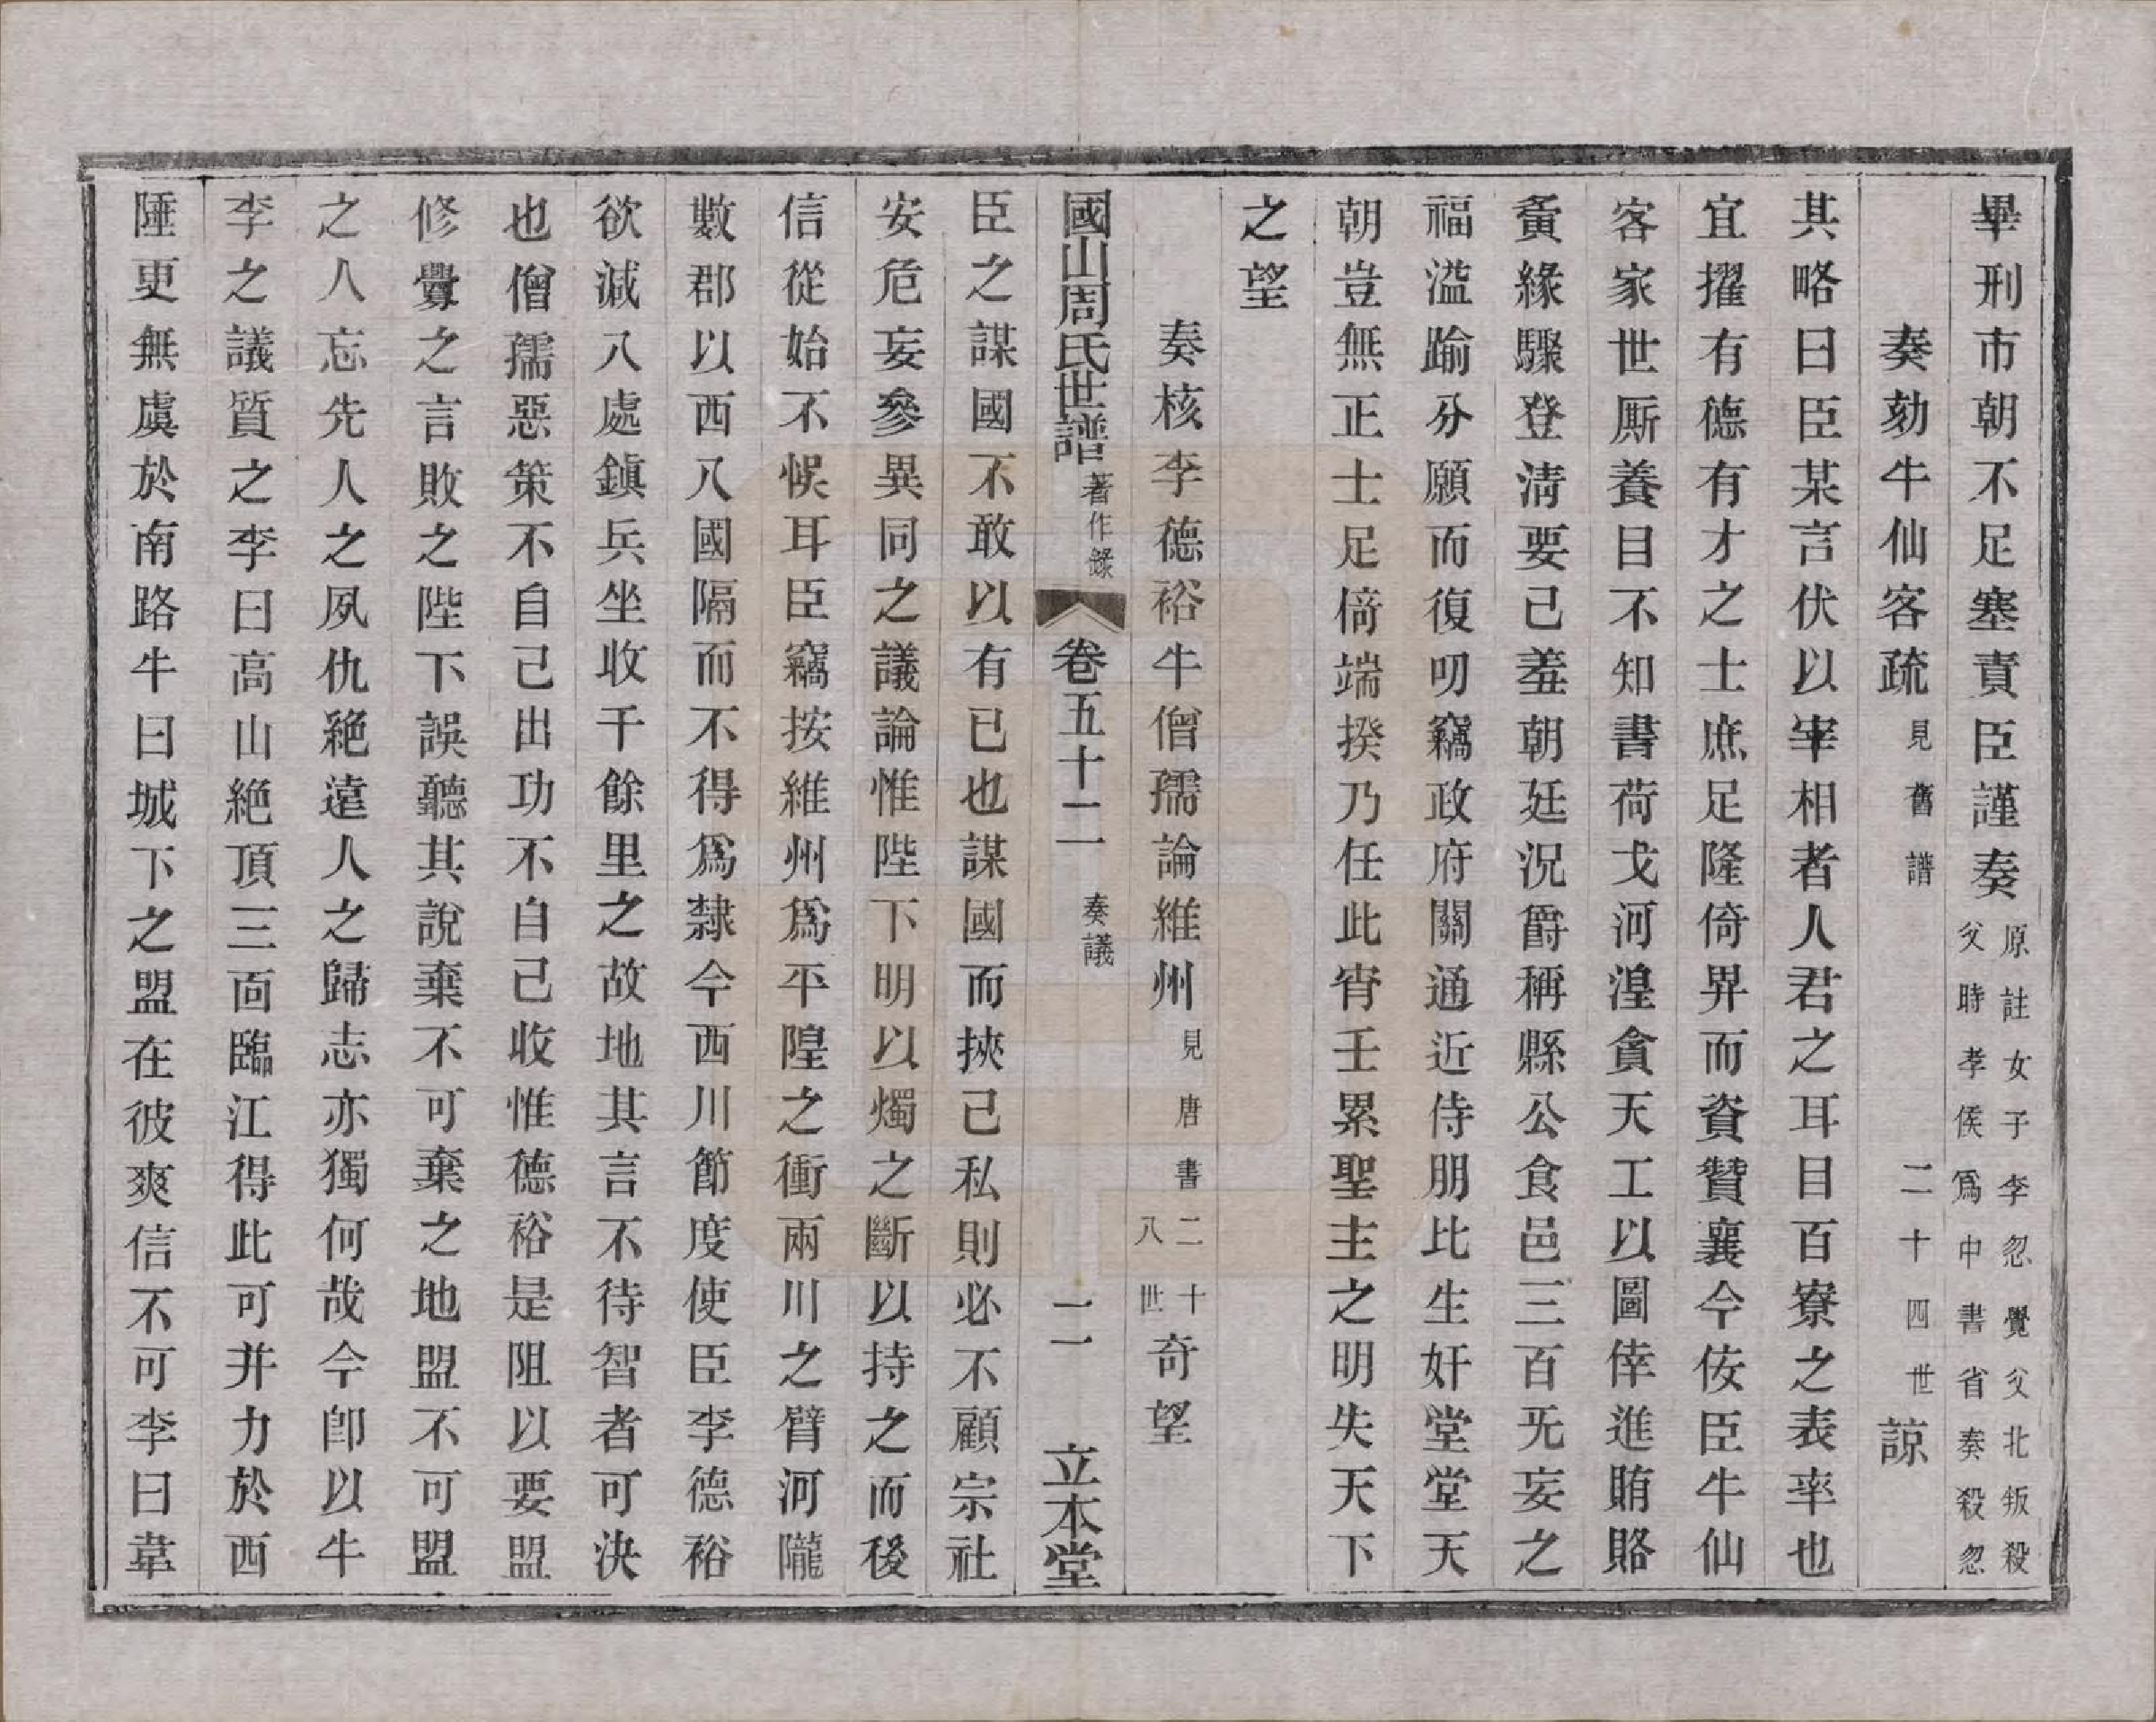 畢刑市朝不足塞責臣謹奏原註女子李忽覺父北叛殺父時孝侯爲中書省奏殺忽
奏劾牛仙客疏見舊譜 二十四世諒
其略曰臣某言伏以宰相者人君之耳目百寮之表率也
宜擢有德有才之士庶足隆倚畀而資贊襄今侫臣牛仙
客家世厮養目不知書荷戈河湟貪天工以圖倖進賄賂
夤緣驟登淸要已羞朝廷況爵稱縣公食邑三百旡妄之
福溢踰分願而復叨竊政府關通近侍朋比生奸堂堂天
朝豈無正士足倚端揆乃任此宵壬累聖主之明失天下
之望
奏核李德裕牛僧孺論維州見唐書二十八世奇望
國山周氏世譜 著作錄 卷五十二 奏議 二 立本堂
臣之謀國不敢以有已也謀國而挾己私則必不顧宗社
安危妄參異同之議論惟陛下明以燭之斷以持之而後
信從始不悞耳臣竊按維州爲平隍之衝兩川之臂河隴
數郡以西八國隔而不得爲隸今西川節度使臣李德裕
欲減八處鎭兵坐收千餘里之故地其言不待智者可決
也僧孺惡策不自己出功不自己收惟德裕是阻以要盟
修釁之言敗之陛下誤聽其說棄不可棄之地盟不可盟
之人忘先人之夙仇絕遠人之歸志亦獨何哉今卽以牛
李之議質之李曰高山絕頂三面臨江得此可并力於西
陲更無虞於南路牛曰城下之盟在彼爽信不可李曰韋